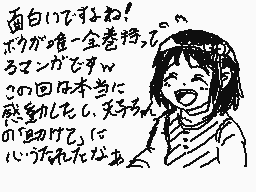 面白いですよね!
ボクが唯一全巻持って
るマンガですw
この回は本当に
感動したし、天子ちゃん
の「助けて」は
心うたれたなぁ